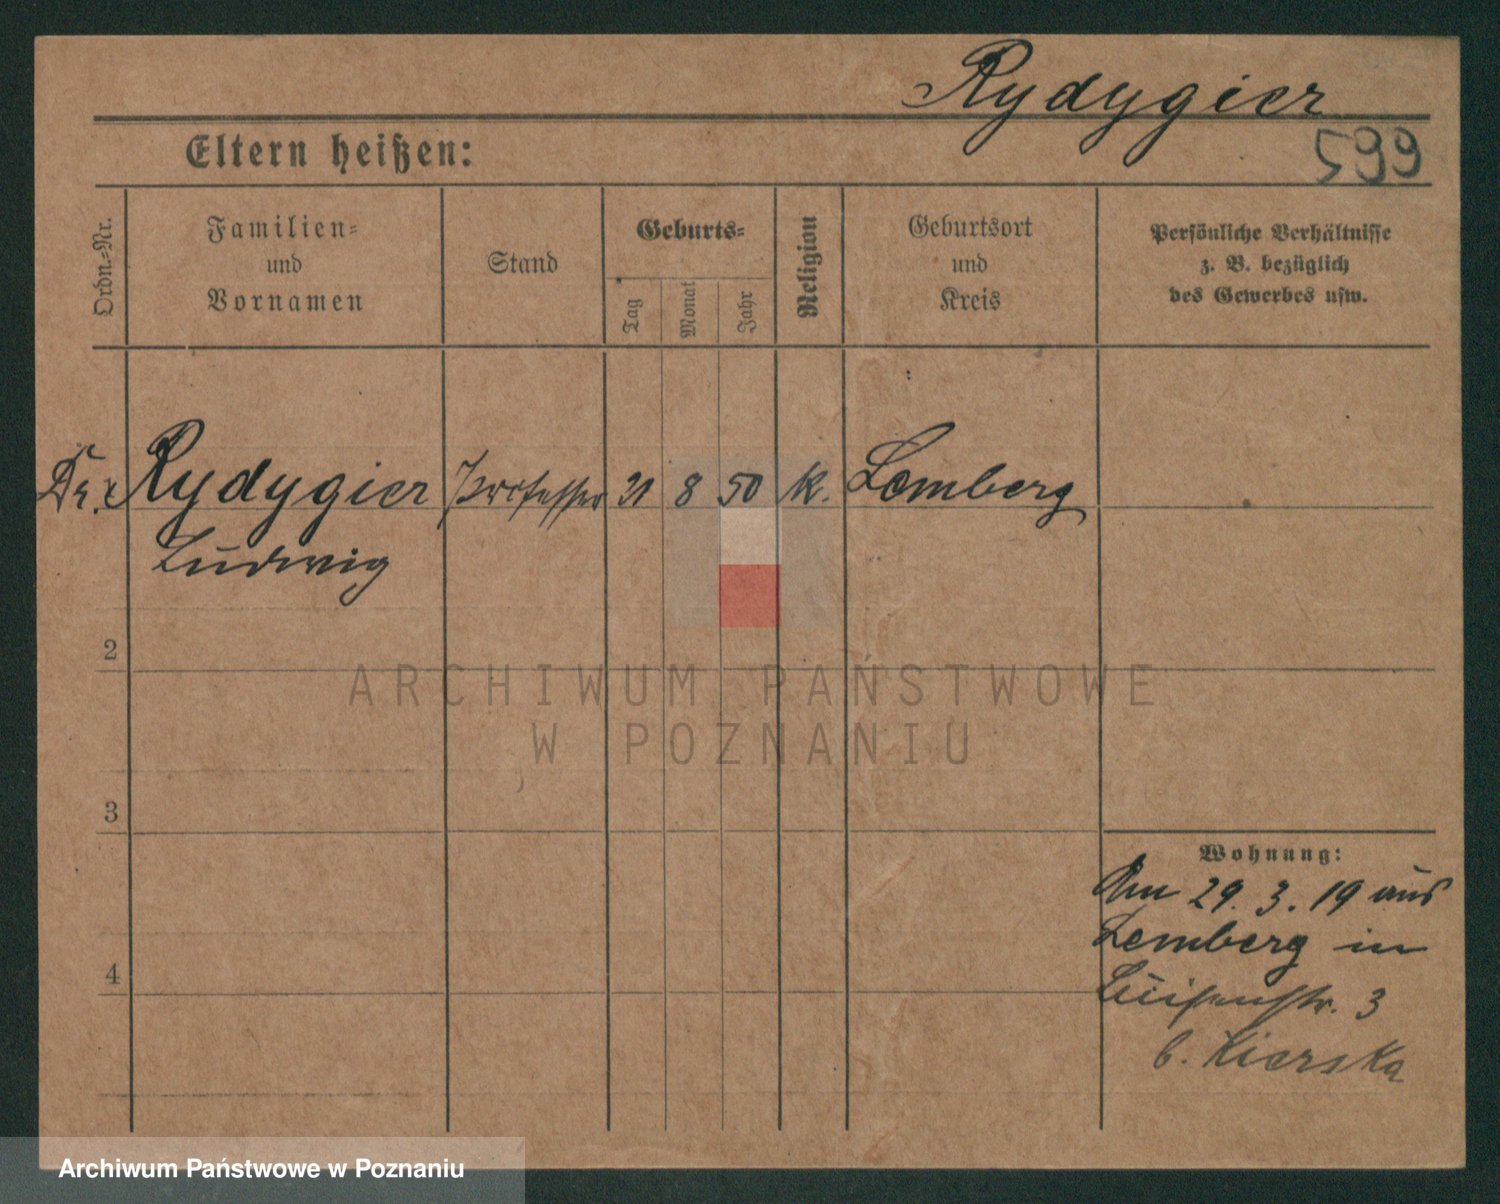 Rydygier
599
Eltern heißen:
Ordn.-Nr.
Familien-
und
Vornamen
Stand
Geburts-
Tag
Monat
Jahr
Religion
Geburtsort
und
Kreis
Persönliche Verhältnisse
z. B. bezüglich
des Gewerbes usw.
Dr. Rydygier Professor 21 8 50 K. Lemberg
Ludwig
2
3
4
Wohnung:
Am 29. 3. 19 aus
Lemberg in
Luisenstr. 3
b. Kierska
ARCHIWUM PAŃSTWOWE
W POZNANIU
Archiwum Państwowe w Poznaniu